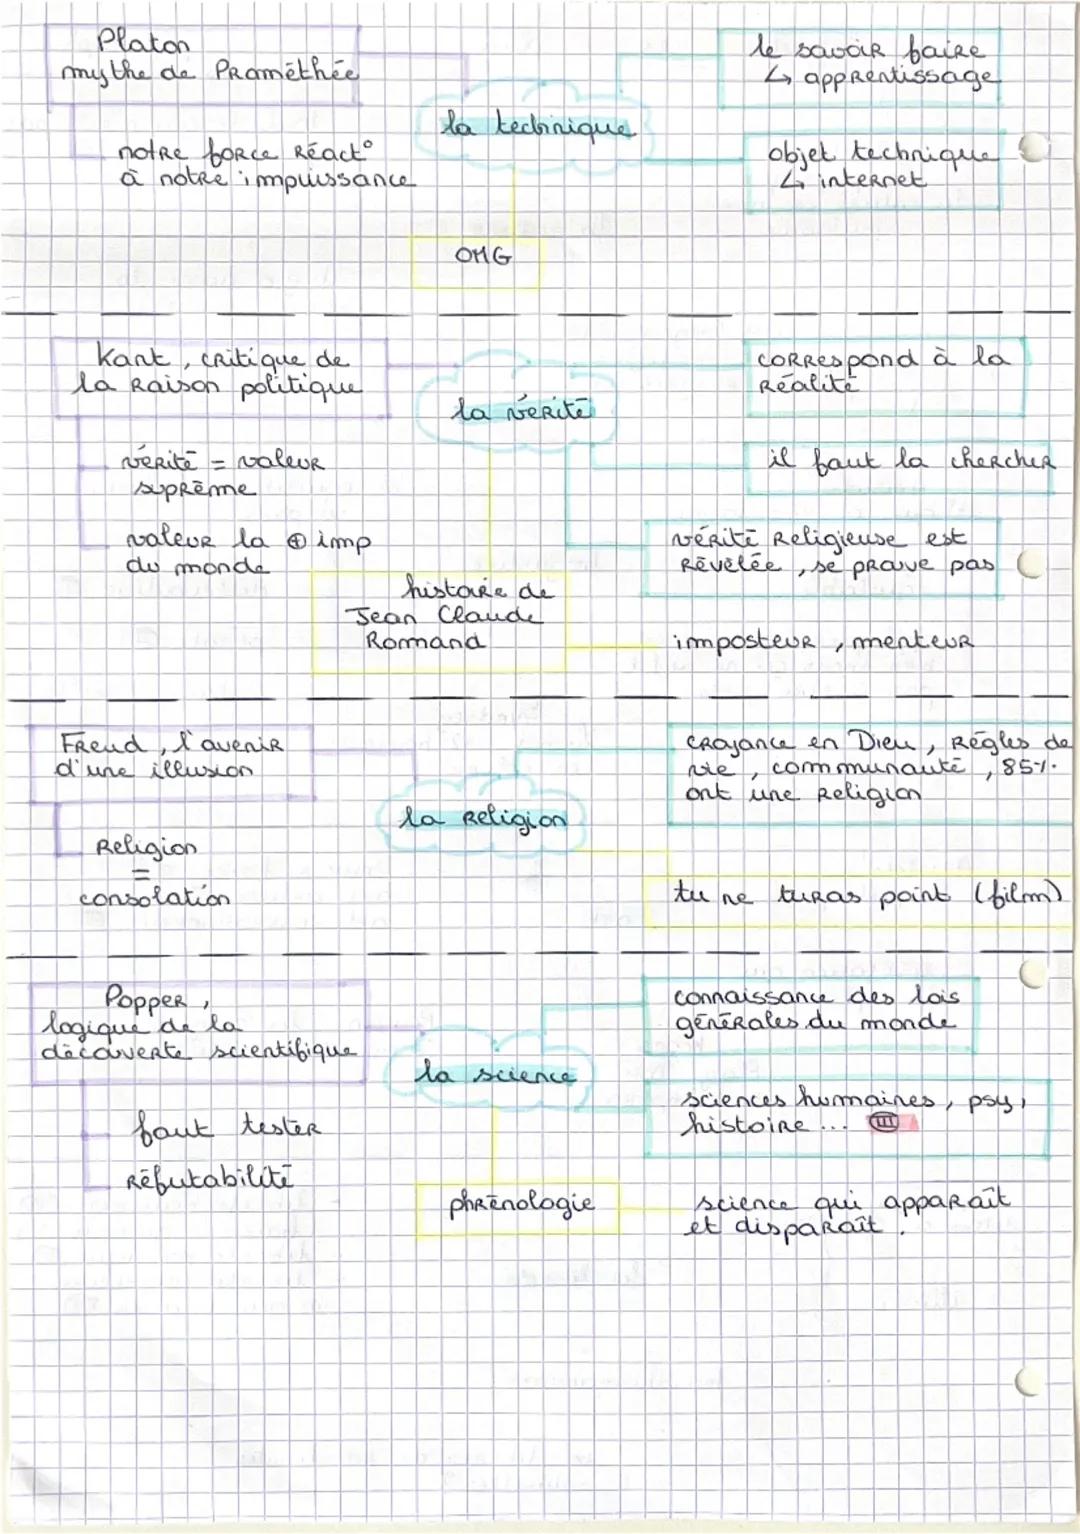 Platon
mythe de Prométhée
le savoir faire
↳ apprentissage
la technique
notre force réact°
à notre impuissance
objet technique
↳ internet
OMG
Kant, critique de
la raison politique
correspond à la
réalité
la vérité
vérité = valeur
suprême
il faut la chercher
valeur la ⊕ imp
du monde
vérité religieuse est
révélée, se prouve pas
histoire de
Jean Claude
Romand
imposteur, menteur
Freud, l'avenir
d'une illusion
croyance en Dieu, règles de
vie, communauté, 85%
ont une religion
la religion
religion
=
consolation
tu ne turas point (film)
Popper,
logique de la
découverte scientifique
connaissance des lois
générales du monde
la science
sciences humaines, psy,
histoire ...
faut tester
réfutabilité
phrénologie
science qui apparaît
et disparaît.